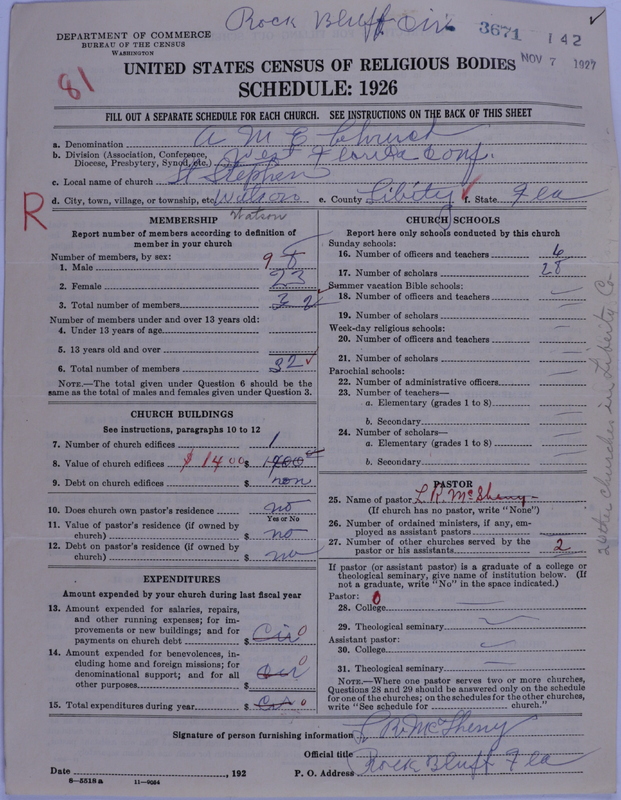 Rock Bluff Cir
3671 142
NOV 7 1927
DEPARTMENT OF COMMERCE
BUREAU OF THE CENSUS
WASHINGTON
81
UNITED STATES CENSUS OF RELIGIOUS BODIES
SCHEDULE: 1926
FILL OUT A SEPARATE SCHEDULE FOR EACH CHURCH. SEE INSTRUCTIONS ON THE BACK OF THIS SHEET
a. Denomination A M E Church
b. Division (Association, Conference, Diocese, Presbytery, Synod, etc.) West Florida Conf.
c. Local name of church St Stephen
d. City, town, village, or township, etc. Watson e. County Libity f. State Fla
Watson
R
MEMBERSHIP
Report number of members according to definition of member in your church
Number of members, by sex:
1. Male 9 8
2. Female 23
3. Total number of members 32
Number of members under and over 13 years old:
4. Under 13 years of age
5. 13 years old and over
6. Total number of members 32
NOTE.—The total given under Question 6 should be the same as the total of males and females given under Question 3.
CHURCH BUILDINGS
See instructions, paragraphs 10 to 12
7. Number of church edifices 1
8. Value of church edifices $1400 $ 1400
9. Debt on church edifices $ non
10. Does church own pastor's residence? no
Yes or No
11. Value of pastor's residence (if owned by church) $ no
12. Debt on pastor's residence (if owned by church) $ no
EXPENDITURES
Amount expended by your church during last fiscal year
13. Amount expended for salaries, repairs, and other running expenses; for improvements or new buildings; and for payments on church debt $ Cir 0
14. Amount expended for benevolences, including home and foreign missions; for denominational support; and for all other purposes $ Cir 0
15. Total expenditures during year $ Cir 0
CHURCH SCHOOLS
Report here only schools conducted by this church
Sunday schools:
16. Number of officers and teachers 6
17. Number of scholars 28
Summer vacation Bible schools:
18. Number of officers and teachers
19. Number of scholars
Week-day religious schools:
20. Number of officers and teachers
21. Number of scholars
Parochial schools:
22. Number of administrative officers
23. Number of teachers—
a. Elementary (grades 1 to 8)
b. Secondary
24. Number of scholars—
a. Elementary (grades 1 to 8)
b. Secondary
PASTOR
25. Name of pastor L. R. McSheny
(If church has no pastor, write "None")
26. Number of ordained ministers, if any, employed as assistant pastors
27. Number of other churches served by the pastor or his assistants 2
If pastor (or assistant pastor) is a graduate of a college or theological seminary, give name of institution below. (If not a graduate, write "No" in the space indicated.)
Pastor: 0
28. College
29. Theological seminary
Assistant pastor:
30. College
31. Theological seminary
NOTE.—Where one pastor serves two or more churches, Questions 28 and 29 should be answered only on the schedule for one of the churches; on the schedules for the other churches, write "See schedule for church."
Signature of person furnishing information L. R. McSheny
Official title
Date , 192 P. O. Address Rock Bluff Fla
8—5518 a 11—9064
2 other churches in Libity Co